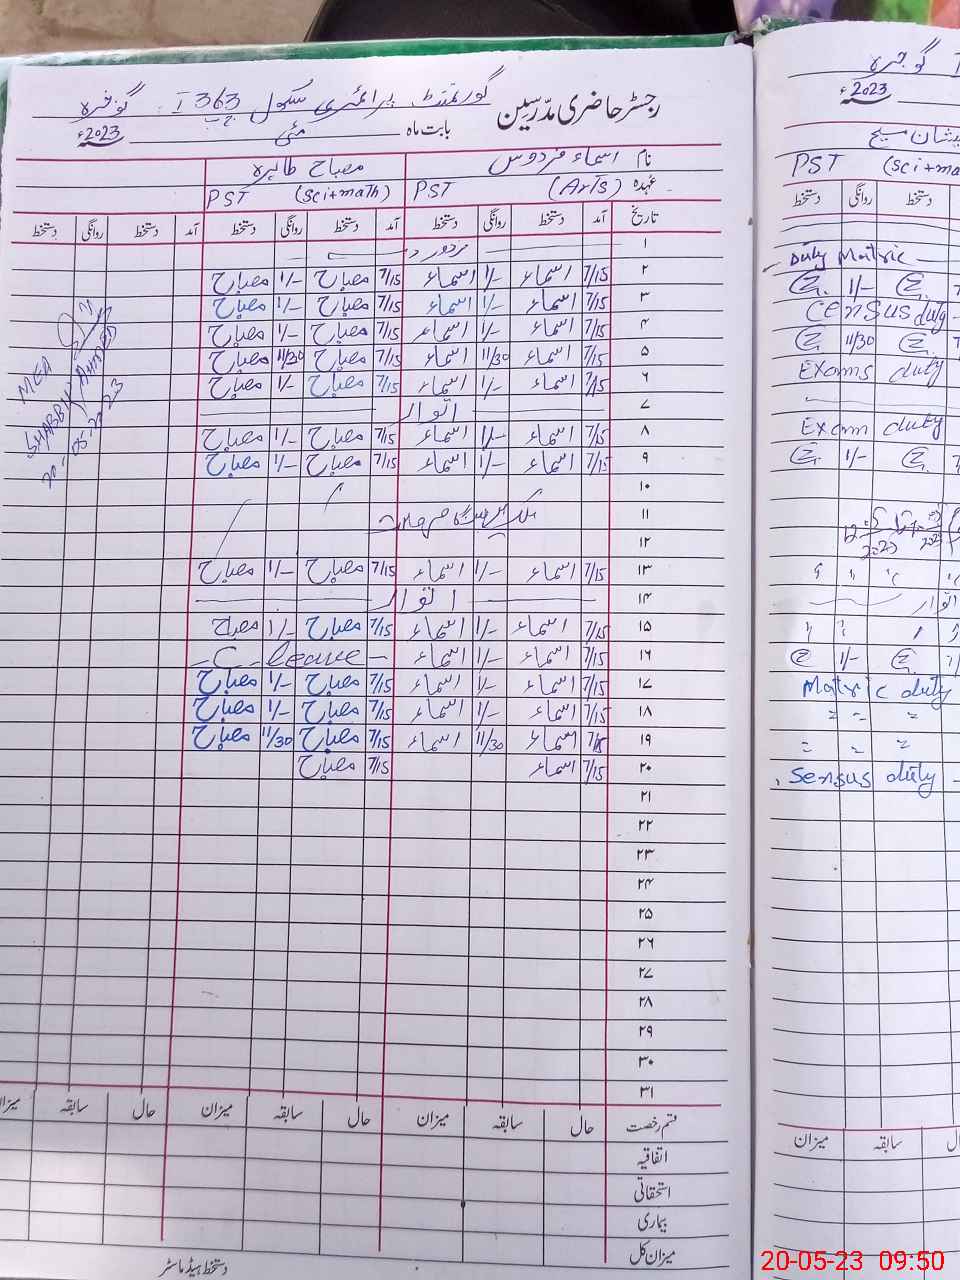 گورنمنٹ پرائمری سکول 363 گوجرہ
رجسٹر حاضری مدرسین
بابت ماہ مئی 2023ء
نام اسماء فردوس مصباح طاہرہ
عہدہ PST (Arts) PST (Sci+math)
تاریخ آمد دستخط روانگی دستخط آمد دستخط روانگی دستخط آمد دستخط روانگی دستخط
۱
۲ 7/15 اسماء 1/- اسماء 7/15 مصباح 1/- مصباح
۳ 7/15 اسماء 1/- اسماء 7/15 مصباح 1/- مصباح
۴ 7/15 اسماء 1/- اسماء 7/15 مصباح 1/- مصباح
۵ 7/15 اسماء 11/30 اسماء 7/15 مصباح 11/30 مصباح
۶ 7/15 اسماء 1/- اسماء 7/15 مصباح 1/- مصباح
۷ اتوار
۸ 7/15 اسماء 1/- اسماء 7/15 مصباح 1/- مصباح
۹ 7/15 اسماء 1/- اسماء 7/15 مصباح 1/- مصباح
۱۰
۱۱
۱۲
۱۳ 7/15 اسماء 1/- اسماء 7/15 مصباح 1/- مصباح
۱۴ اتوار
۱۵ 7/15 اسماء 1/- اسماء 7/15 مصباح 1/- مصباح
۱۶ 7/15 اسماء 1/- اسماء C. leave
۱۷ 7/15 اسماء 1/- اسماء 7/15 مصباح 1/- مصباح
۱۸ 7/15 اسماء 1/- اسماء 7/15 مصباح 1/- مصباح
۱۹ 7/15 اسماء 11/30 اسماء 7/15 مصباح 11/30 مصباح
۲۰ 7/15 اسماء 7/15 مصباح
۲۱
۲۲
۲۳
۲۴
۲۵
۲۶
۲۷
۲۸
۲۹
۳۰
۳۱
قسم رخصت حال سابقہ میزان حال سابقہ میزان حال سابقہ میزان
اتفاقیہ
استحقاقی
بیماری
میزان کل
دستخط ہیڈ ماسٹر
MEA
SHABBIR AHMED
20-05-2023
گوجرہ
2023ء
PST (Sci+ma
دستخط روانگی دستخط
Duty Matric
1/-
Census duty
11/30
Exams duty
Exam duty
1/-
اتوار
1/-
Matric duty
Sensus duty
سابقہ میزان
20-05-23 09:50